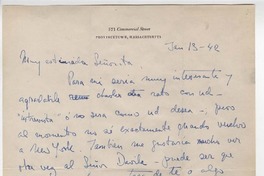 571 Commercial Street
Provincetown, Massachusetts
Jan 13-42
Muy estimada Señorita
Para mi seria muy interesante y
agradable charlar rato con ud -
"entrevista" o como ud desea - pero
al momento no sé exactamente quando vuelvo
a New York. Tambien me gustaria mucho ver
otra vez al Señor Davila - puede ser que
de te o algo